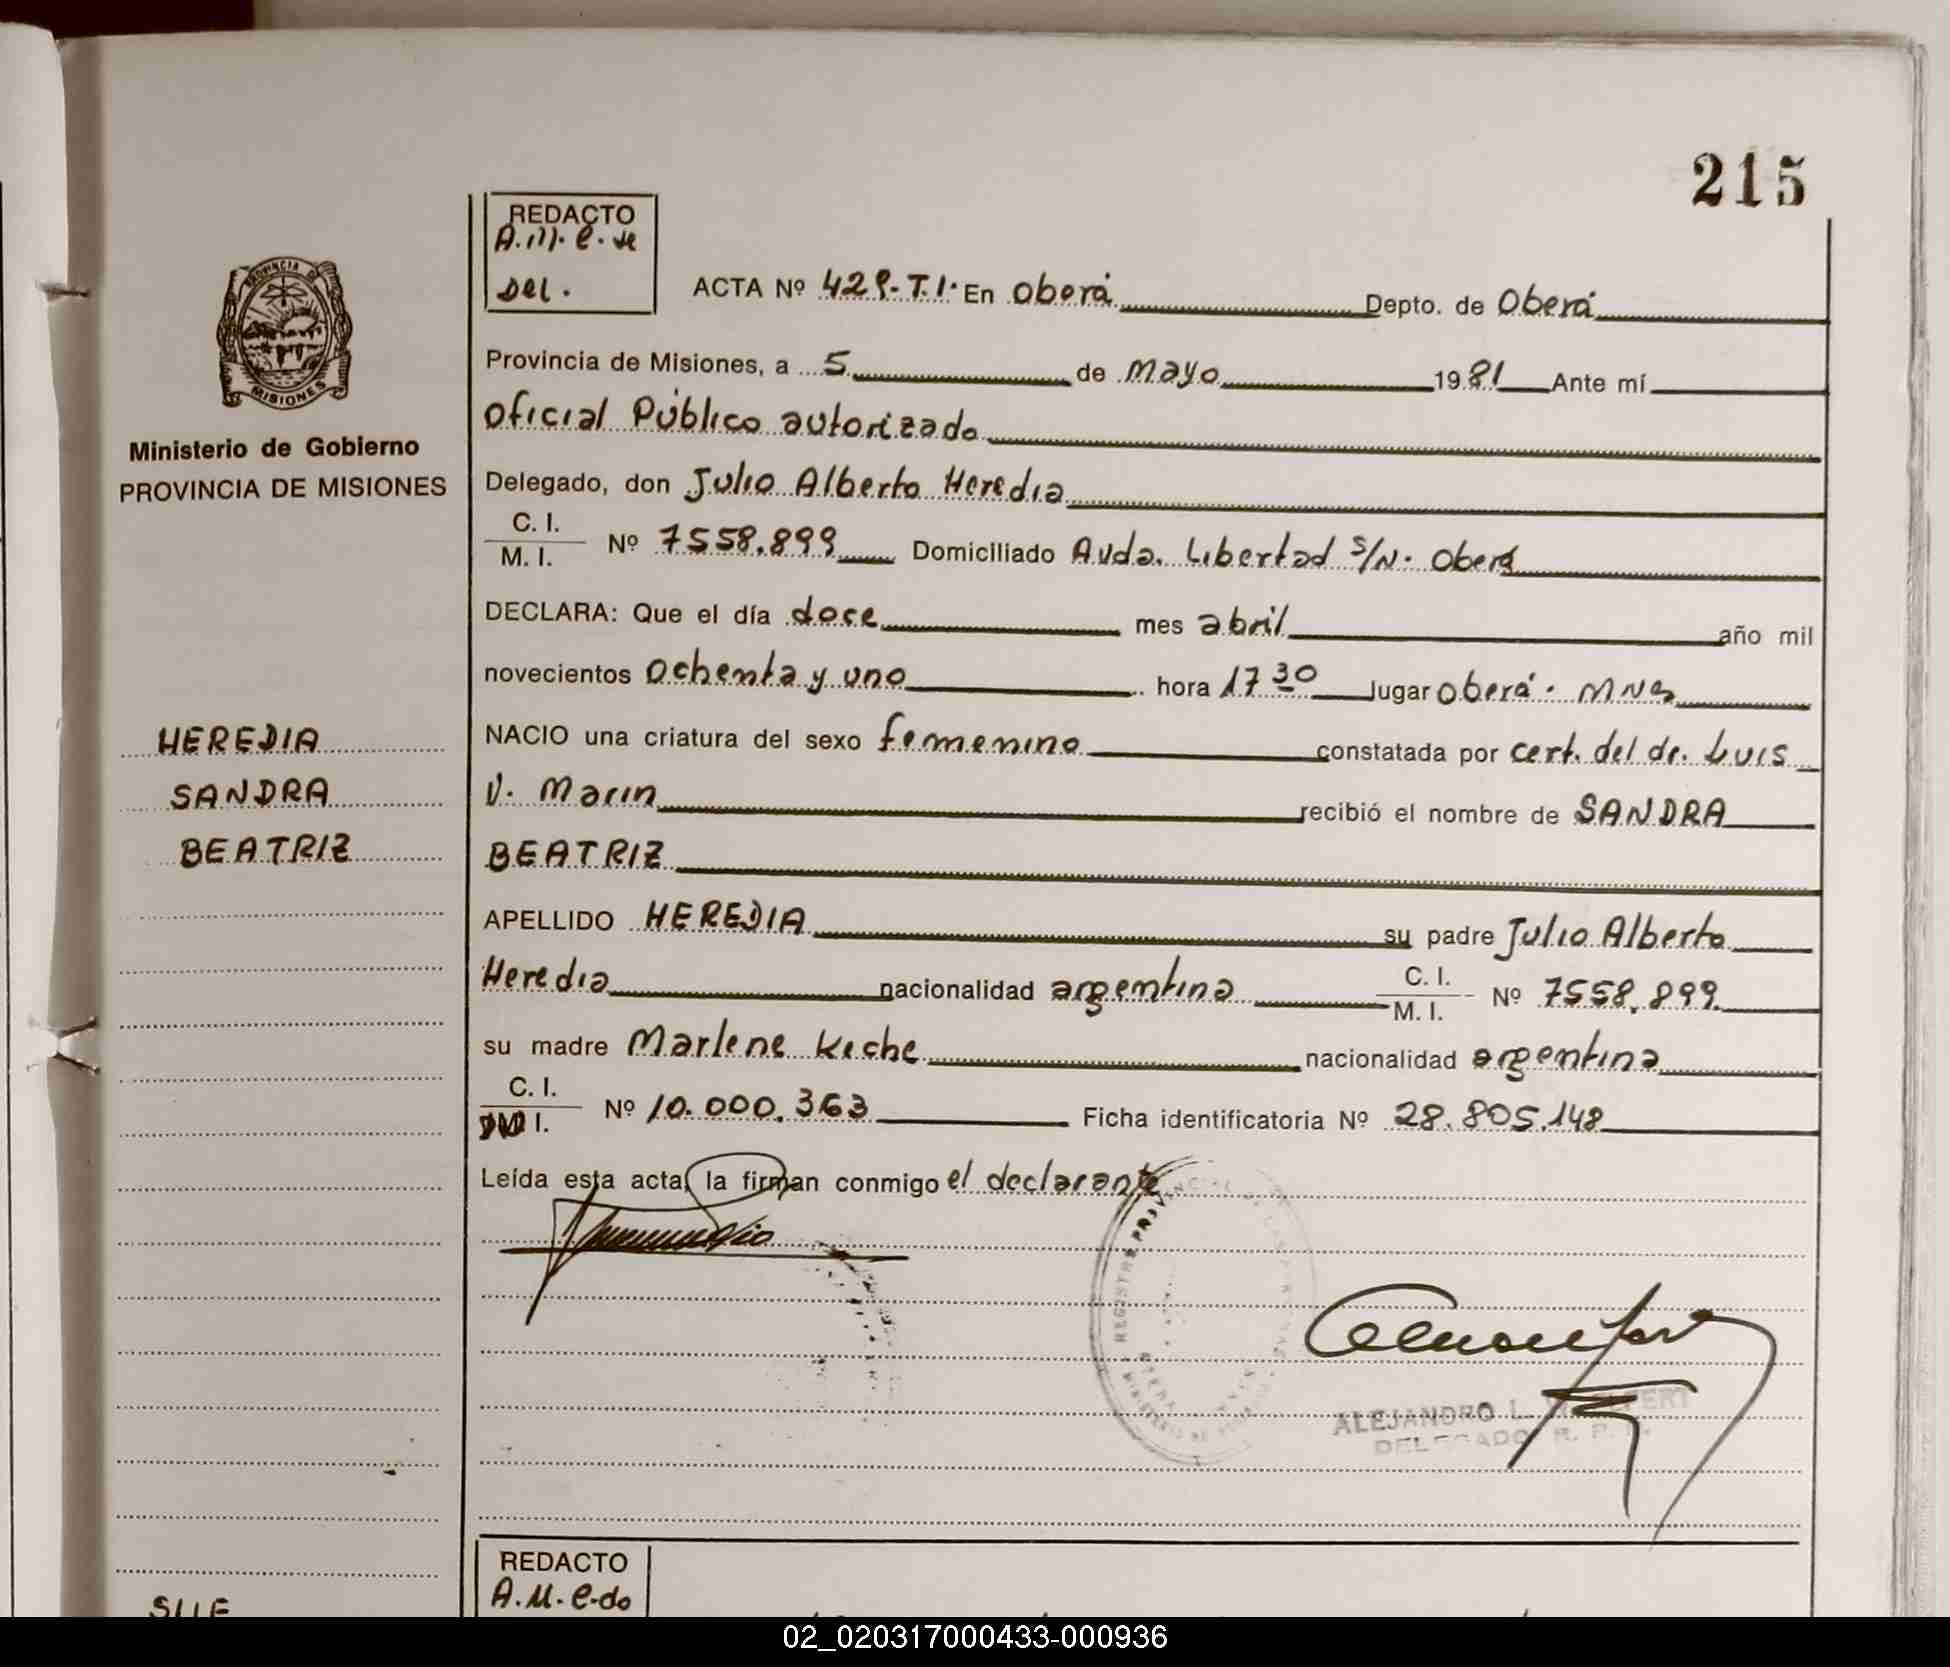 215
REDACTO
A.M.C. de
Del.
ACTA Nº 429-T.I. En Oberá Depto. de Oberá
Provincia de Misiones, a 5 de Mayo 1981 Ante mí
Oficial Público autorizado
Delegado, don Julio Alberto Heredia
C. I.
M. I. Nº 7558.899 Domiciliado Avda. Libertad S/N. Oberá
DECLARA: Que el día doce mes abril año mil
novecientos ochenta y uno hora 17 30 lugar Oberá. Mnes
NACIO una criatura del sexo femenino constatada por cert. del dr. Luis
V. Marin recibió el nombre de SANDRA
BEATRIZ
APELLIDO HEREDIA su padre Julio Alberto
Heredia nacionalidad argentina C. I.
M. I. Nº 7558.899.
su madre Marlene Keche nacionalidad argentina
C. I.
I. Nº 10.000.363 Ficha identificatoria Nº 28.805.148
Leída esta acta, la firman conmigo el declarante
REGISTRO PROVINCIAL DE LAS PERSONAS
ALEJANDRO L.
DELEGADO R. P. P.
PROVINCIA DE
MISIONES
Ministerio de Gobierno
PROVINCIA DE MISIONES
HEREDIA
SANDRA
BEATRIZ
REDACTO
A.M.C. do
02_020317000433-000936